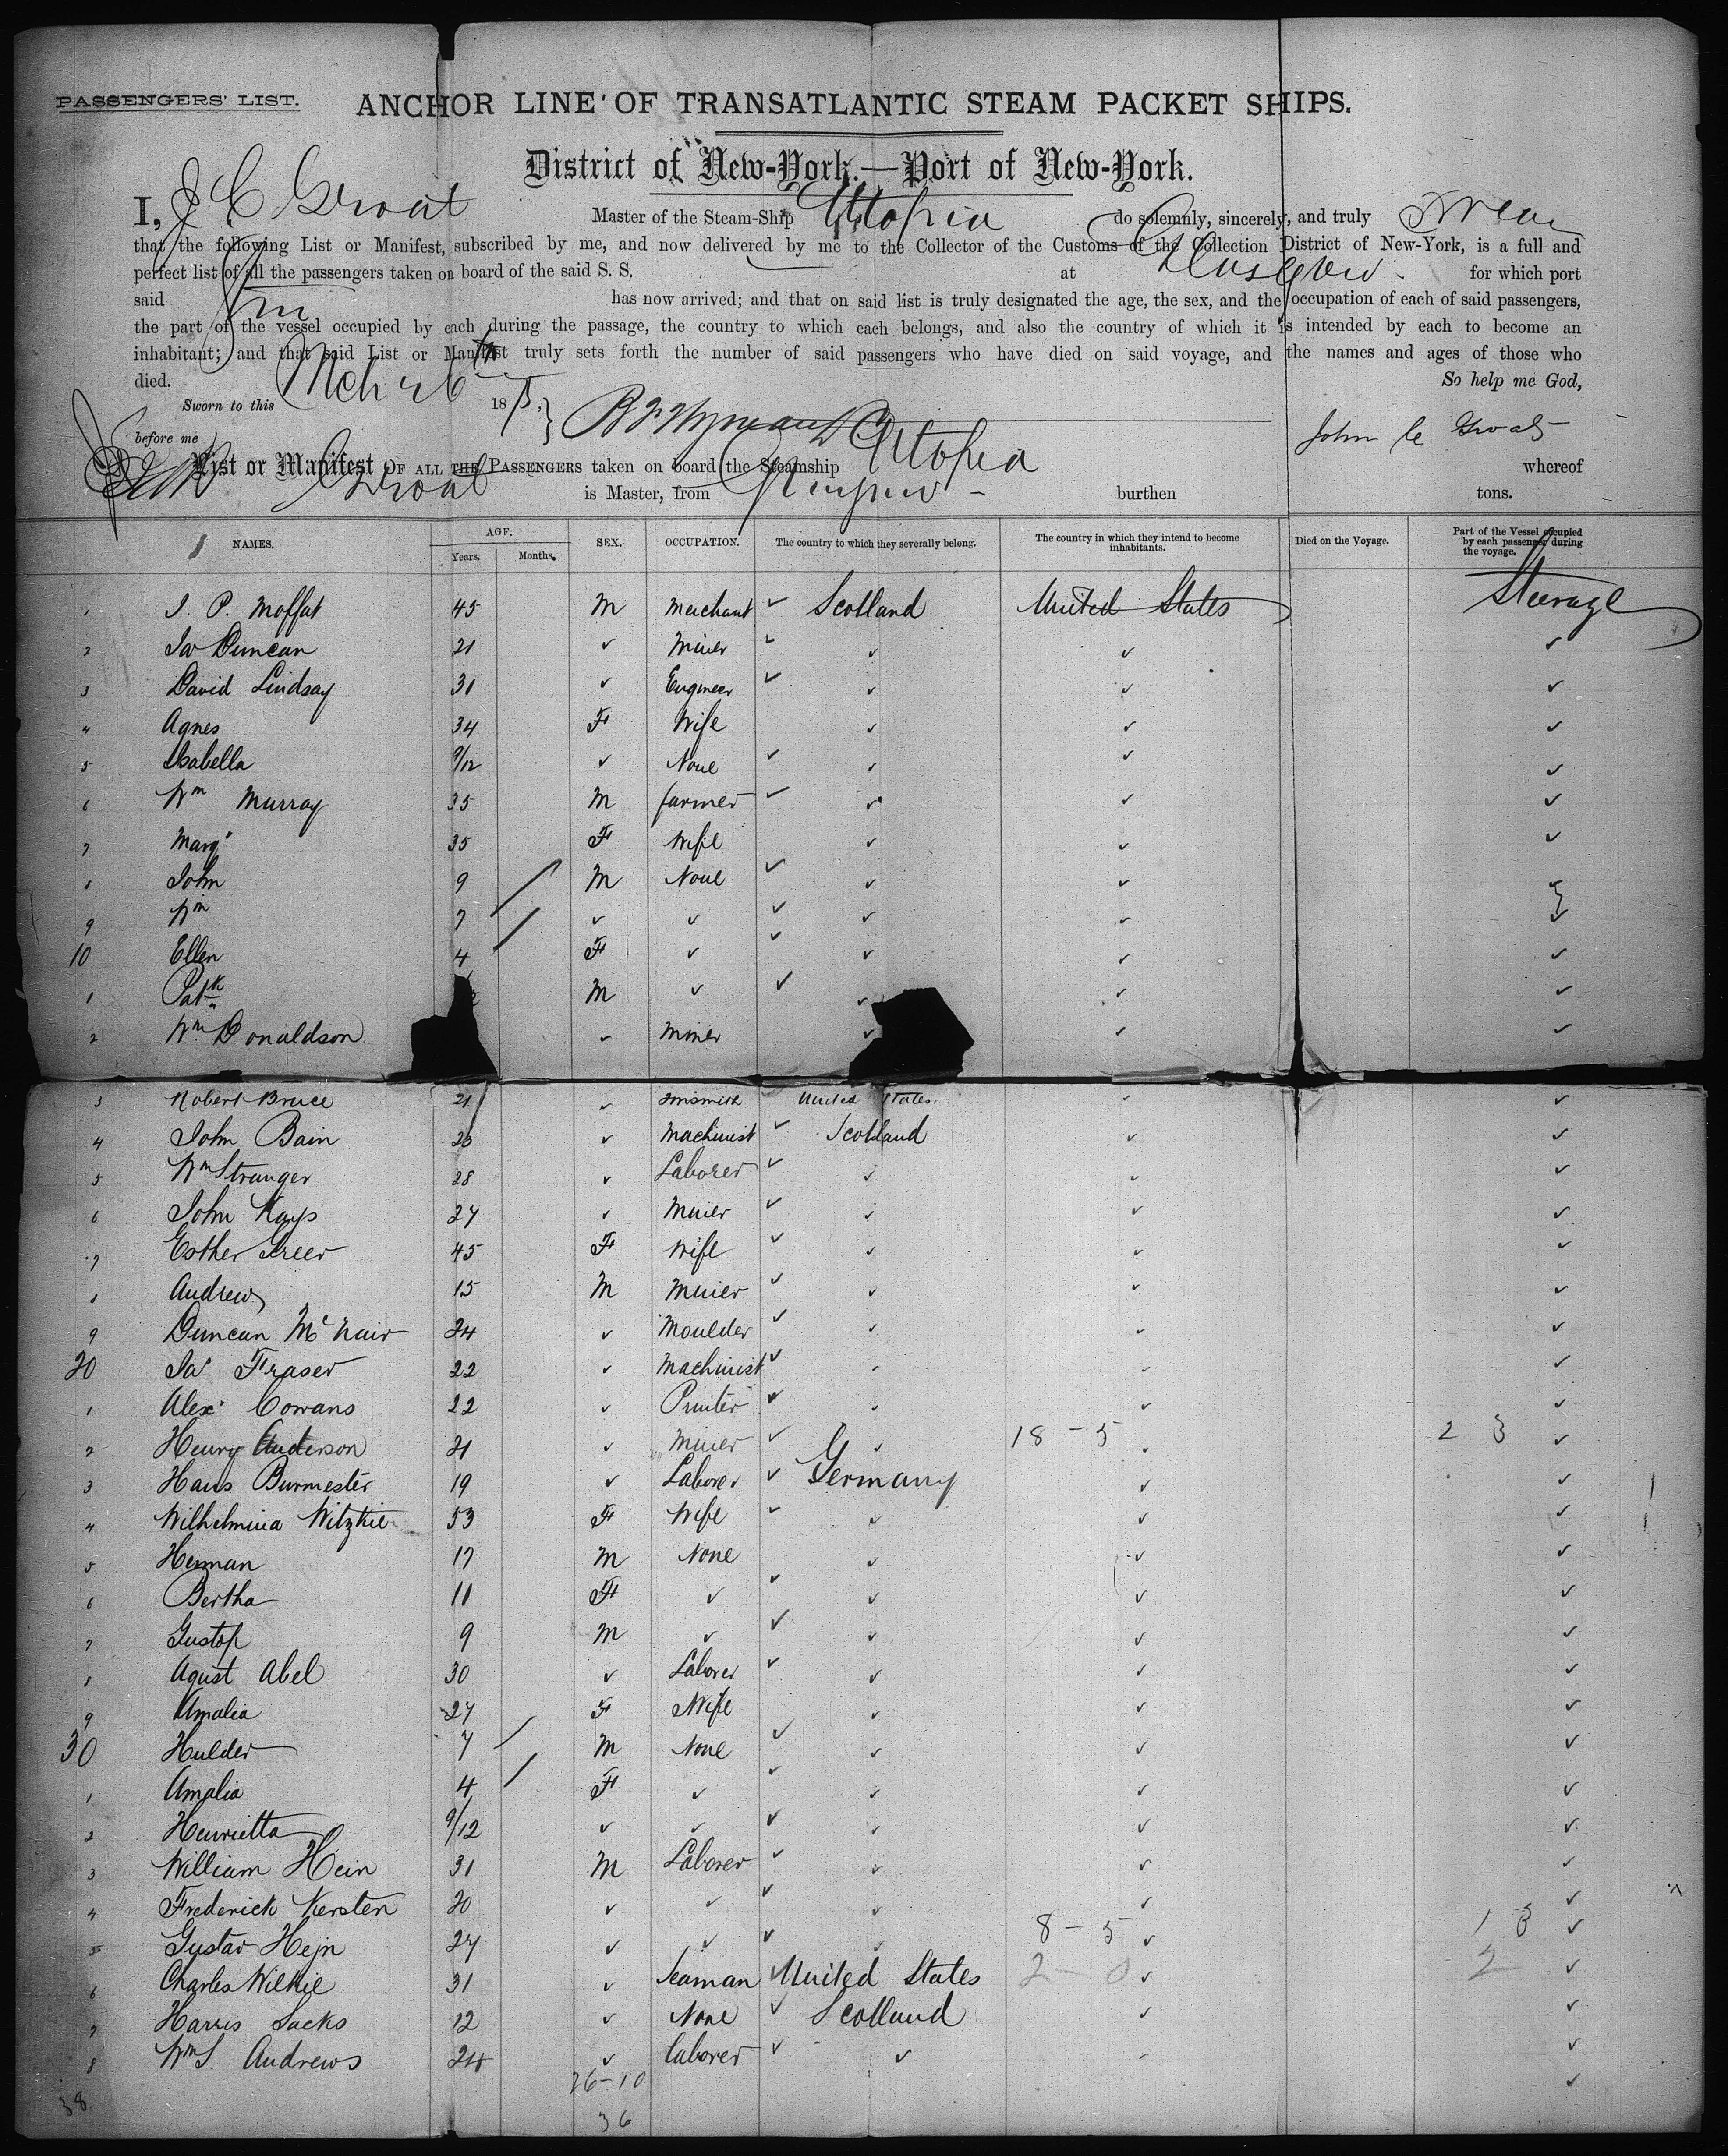 PASSENGERS' LIST.
ANCHOR LINE OF TRANSATLANTIC STEAM PACKET SHIPS.
District of New-York.—Port of New-York.
I, J C Groat Master of the Steam-Ship Utopia do solemnly, sincerely, and truly swear
that the following List or Manifest, subscribed by me, and now delivered by me to the Collector of the Customs of the Collection District of New-York, is a full and
perfect list of all the passengers taken on board of the said S. S. at Glasgow for which port
said has now arrived; and that on said list is truly designated the age, the sex, and the occupation of each of said passengers,
the part of the vessel occupied by each during the passage, the country to which each belongs, and also the country of which it is intended by each to become an
inhabitant; and that said List or Manifest truly sets forth the number of said passengers who have died on said voyage, and the names and ages of those who
died. So help me God,
Sworn to this Mch 26 18
before me John C Groat
List or Manifest OF ALL THE PASSENGERS taken on board the Steamship Utopia whereof
Groat is Master, from Glasgow burthen tons.
NAMES. AGE. SEX. OCCUPATION. The country to which they severally belong. The country in which they intend to become inhabitants. Died on the Voyage. Part of the Vessel occupied by each passenger during the voyage.
Years. Months.
1 J. P. Moffat 45 M Merchant ✓ Scotland United States Steerage
2 Jas Duncan 21 ✓ Miner ✓ ✓ ✓ ✓
3 David Lindsay 31 ✓ Engineer ✓ ✓ ✓ ✓
4 Agnes 34 F Wife ✓ ✓ ✓
5 Isabella 9/12 ✓ None ✓ ✓ ✓ ✓
6 Wm Murray 35 M farmer ✓ ✓ ✓ ✓
7 Margt 35 F Wife ✓ ✓ ✓
8 John 9 M None ✓ ✓ ✓ ✓
9 Wm 7 ✓ ✓ ✓ ✓ ✓ ✓
10 Ellen 4 F ✓ ✓ ✓ ✓ ✓
1 Patk M ✓ ✓ ✓ ✓ ✓
2 Wm Donaldson ✓ Miner ✓ ✓ ✓
3 Robert Bruce 21 ✓ Tinsmith United States ✓ ✓
4 John Bain 23 ✓ Machinist ✓ Scotland ✓ ✓
5 Wm Stranger 28 ✓ Laborer ✓ ✓ ✓ ✓
6 John Kays 27 ✓ Miner ✓ ✓ ✓ ✓
7 Esther Greer 45 F Wife ✓ ✓ ✓ ✓
8 Andrew 15 M Miner ✓ ✓ ✓ ✓
9 Duncan McNair 24 ✓ Moulder ✓ ✓ ✓ ✓
20 Jas Fraser 22 ✓ Machinist ✓ ✓ ✓ ✓
1 Alex Cowans 22 ✓ Printer ✓ ✓ ✓ ✓
2 Henry Anderson 21 ✓ Miner ✓ ✓ 18 - 5 ✓ 2 3 ✓
3 Hans Burmester 19 ✓ Laborer ✓ Germany ✓ ✓
4 Wilhelmina Witzkie 53 F Wife ✓ ✓ ✓ ✓
5 Herman 17 M None ✓ ✓ ✓
6 Bertha 11 F ✓ ✓ ✓ ✓ ✓
7 Gustof 9 M ✓ ✓ ✓ ✓ ✓
8 Agust Abel 30 ✓ Laborer ✓ ✓ ✓ ✓
9 Amalia 27 F Wife ✓ ✓ ✓
30 Hulder 7 M None ✓ ✓ ✓ ✓
1 Amalia 4 F ✓ ✓ ✓ ✓ ✓
2 Henrietta 9/12 ✓ ✓ ✓ ✓ ✓ ✓
3 William Hein 31 M Laborer ✓ ✓ ✓ ✓
4 Frederick Kersten 20 ✓ ✓ ✓ ✓ ✓ ✓
5 Gustav Hejn 27 ✓ ✓ ✓ ✓ 8 - 5 ✓ 1 3 ✓
6 Charles Wilkie 31 ✓ Seaman ✓ United States 2 - 0 ✓ 2 ✓
7 Harris Sacks 12 ✓ None ✓ Scotland ✓ ✓
8 Wm S. Andrews 24 ✓ laborer ✓ ✓ ✓
26-10 ✓
38 36